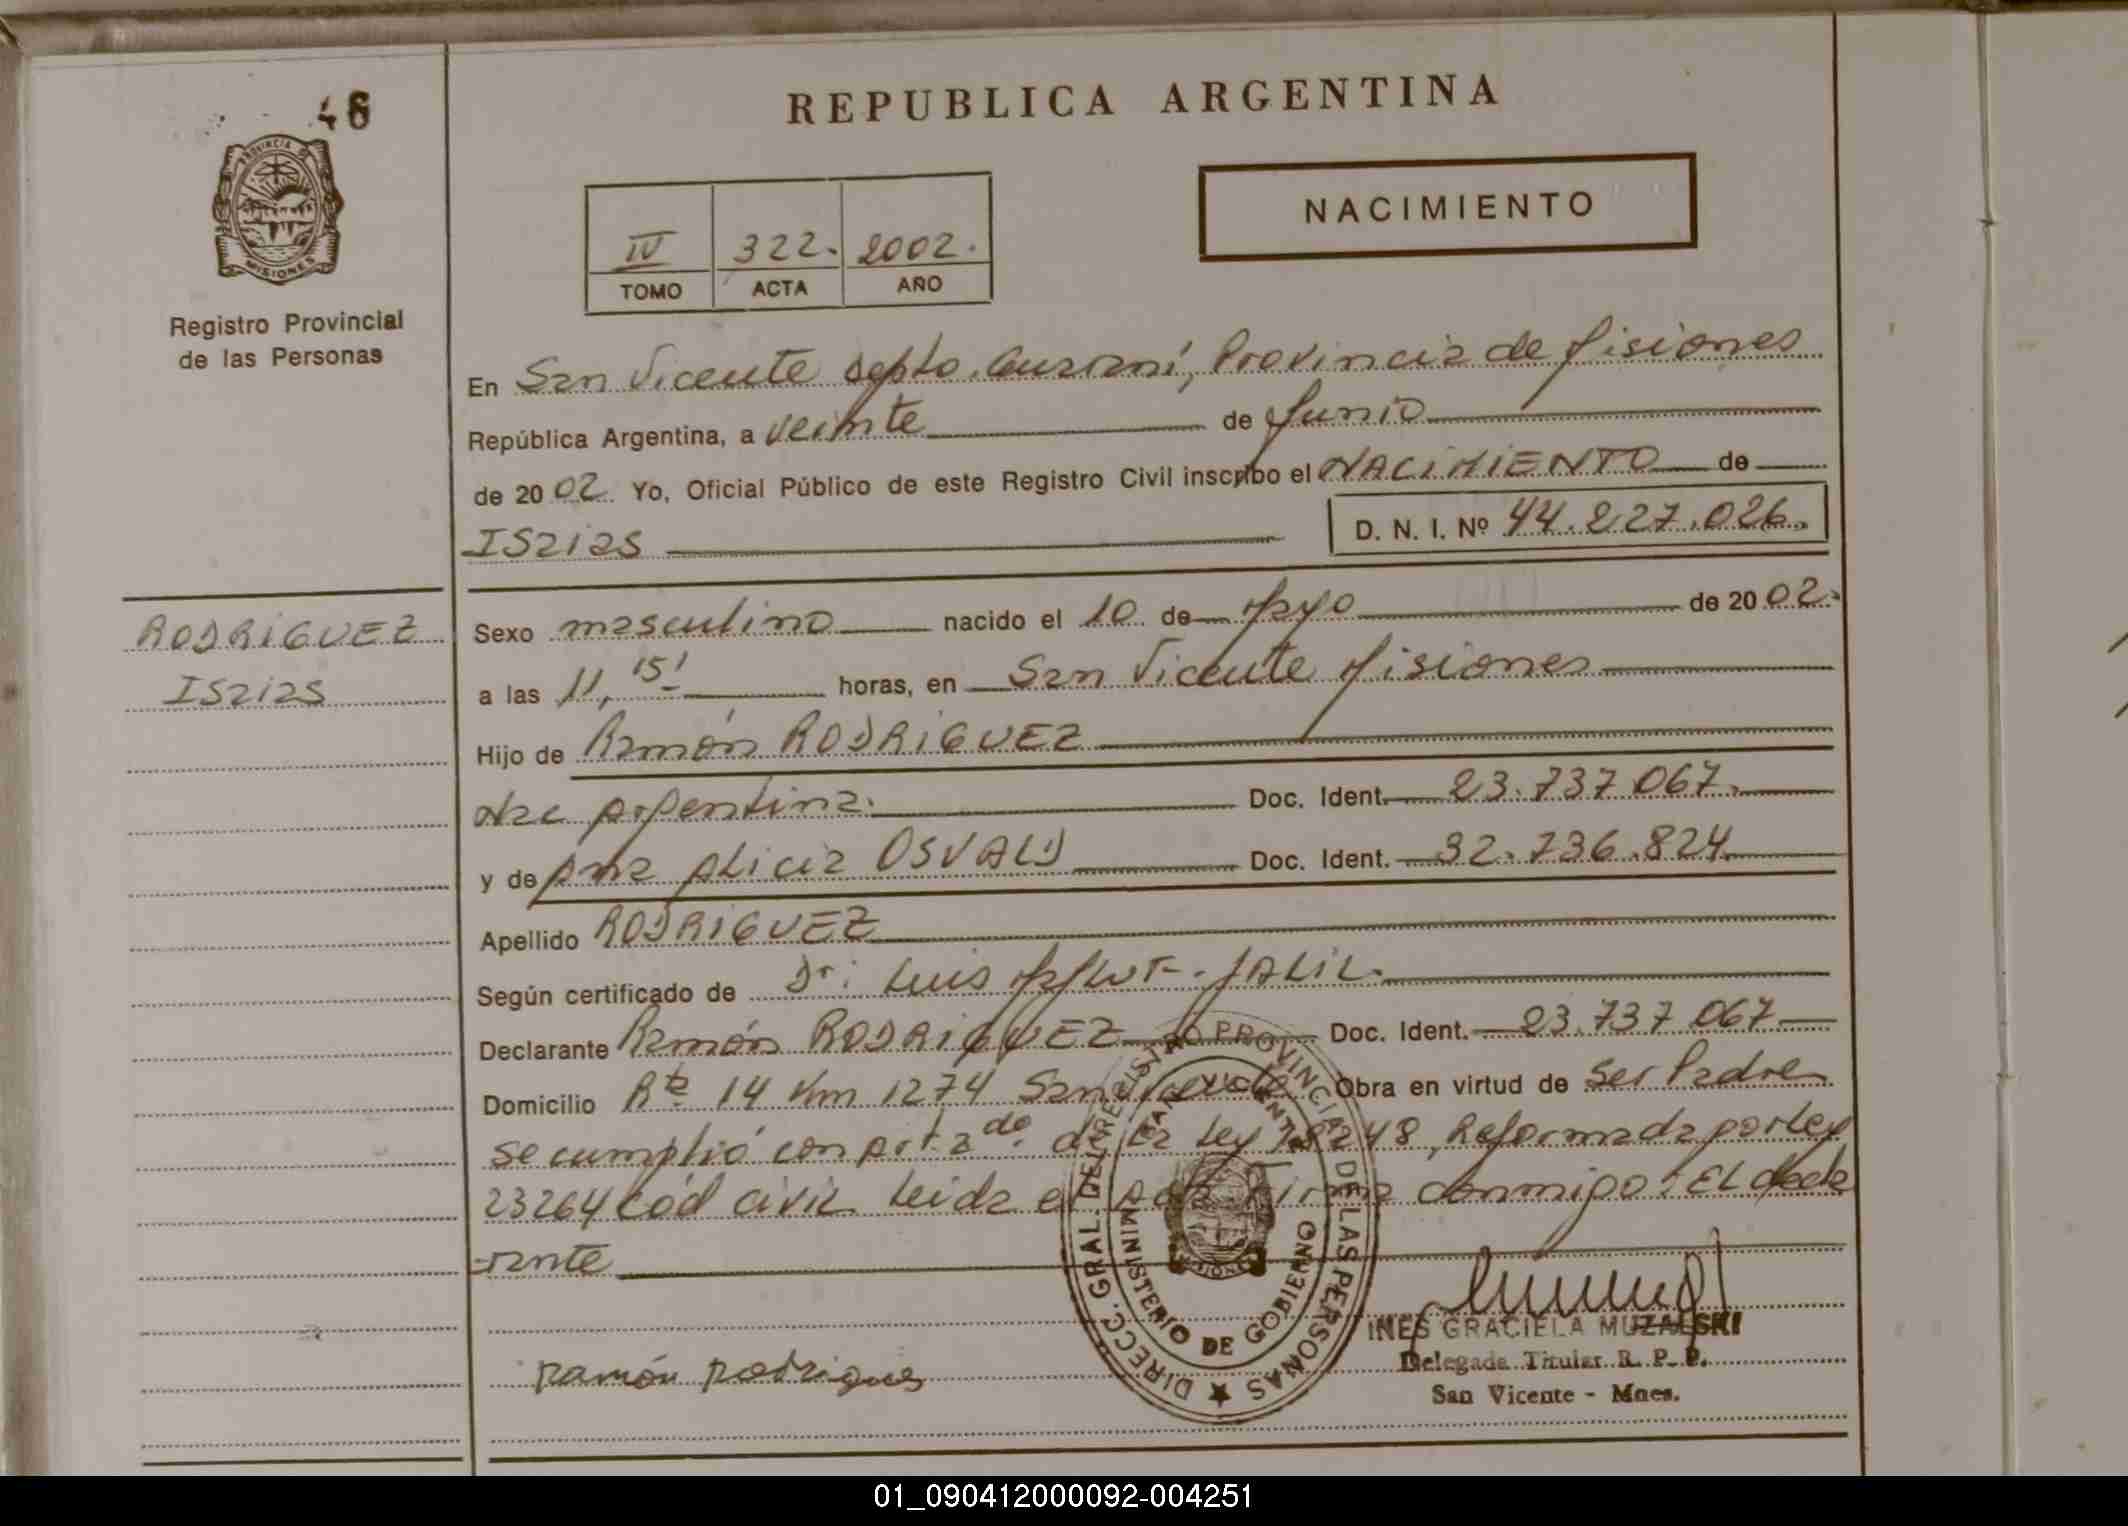 46
REPUBLICA ARGENTINA
PROVINCIA DE
MISIONES
Registro Provincial
de las Personas
IV 322. 2002.
TOMO ACTA AÑO
NACIMIENTO
En San Vicente depto. Guaraní, Provincia de Misiones
República Argentina, a veinte de Junio
de 2002 Yo, Oficial Público de este Registro Civil inscribo el NACIMIENTO de
ISaias D. N. I. Nº 44.227.026.
RODRIGUEZ
ISaias
Sexo masculino nacido el 10 de Mayo de 2002.
a las 11,15' horas, en San Vicente Misiones
Hijo de Ramón RODRIGUEZ
Nac Argentina. Doc. Ident. 23.737.067.
y de Ana Alicia OSVALD Doc. Ident. 32.736.824
Apellido RODRIGUEZ
Según certificado de Dr: Luis JALIL.
Declarante Ramón RODRIGUEZ Doc. Ident. 23.737.067
Domicilio Rta 14 Km 1274 San Vicente Obra en virtud de Ser Padre
Se cumplió con Art. 2do. de la Ley 18248, Reformada por Ley
23264 Cód Civil Leida el Acta Firma conmigo: EL decla
-rante
DIRECC. GRAL. DEL REGISTRO PROVINCIAL DE LAS PERSONAS
SAN VICENTE
MINISTERIO DE GOBIERNO
Ramón Rodrigues
INES GRACIELA MUZALSKI
Delegada Titular R. P. P.
San Vicente - Mnes.
01_090412000092-004251